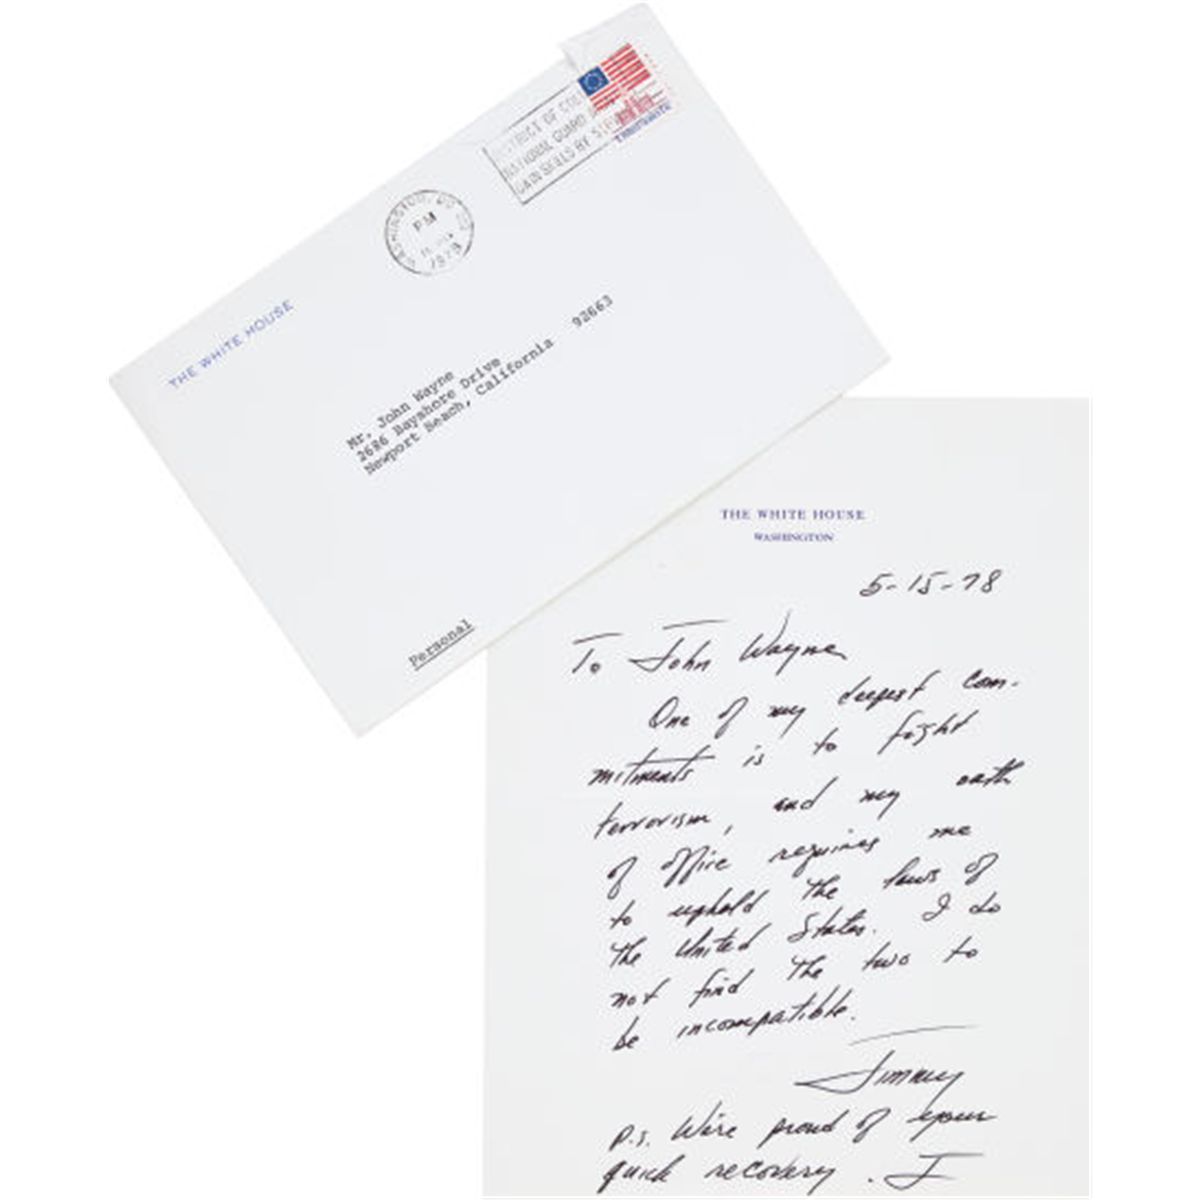 DISTRICT OF
NATIONAL GUARD
GAIN SKILLS BY
WASHINGTON, DC
PM
1978
THE WHITE HOUSE
Mr. John Wayne
2686 Bayshore Drive
Newport Beach, California 92663
Personal
THE WHITE HOUSE
WASHINGTON
5-15-78
To John Wayne
One of my deepest com-
mitments is to fight
terrorism, and my oath
of office requires me
to uphold the laws of
the United States. I do
not find the two to
be incompatible.
Jimmy
p.s. We're proud of your
quick recovery. J